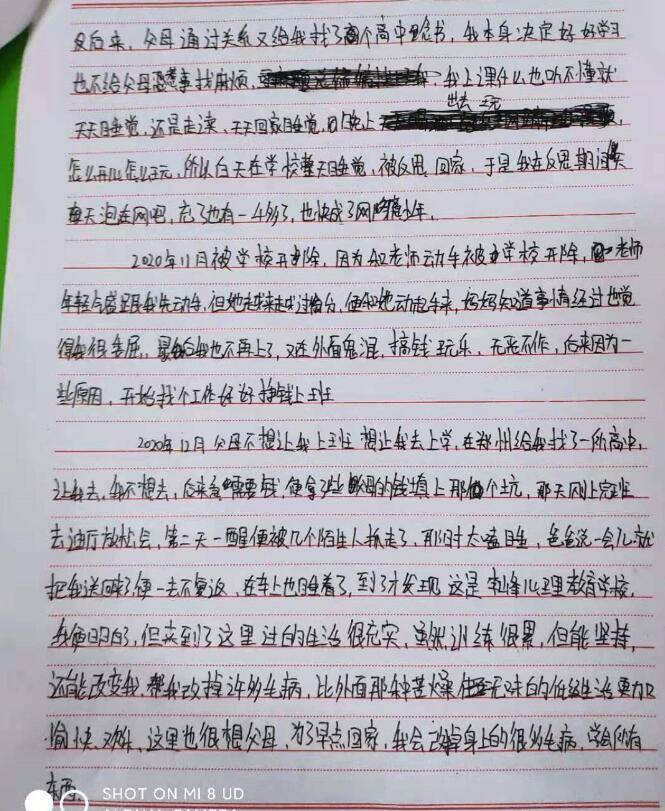 没后来，父母通过关系又给我找了个高中里念书，我本身决定好好学习
也不给父母惹事找麻烦，我上课什么也听不懂就
天天睡觉，还是走读，天天回家睡觉，晚上出去玩
怎么开心怎么玩，所以白天在学校整天睡觉，被反思回家，于是我在反思期间
每天泡在网吧，玩了也有一年多了，也快成了网瘾少年。
2020年11月被学校开除，因为和老师动手被学校开除，老师
年轻气盛跟我先动手，但她越来越过分，便和她动起手来，妈妈知道事情经过也觉
得我很委屈，最后我也不再上了，又在外面鬼混，搞钱玩乐，无恶不作，后来因为一
些原因，开始找个工作好好挣钱上班
2020年12月父母不想让我上班想让我去上学，在郑州给我找了一所高中，
让我去，我不想去，后来急需要钱，便拿了些父母的钱填上那个坑，那天刚上完班
去迪厅放松会，第二天一醒便被几个陌生人抓走了，那时太瞌睡，爸爸说一会儿就
把我送回来了便一去不复返，在车上也睡着了，到了才发现这是 心理教育学校，
我便明白了，但来到了这里过的生活很充实，虽然训练很累，但能坚持，
还能改变我，帮我改掉许多毛病，比外面那种苦燥无味的低级生活更加
愉快、欢乐，这里也很想父母，为了早点回家，我会改掉身上的很多毛病，学会所有
东西。
SHOT ON MI 8 UD